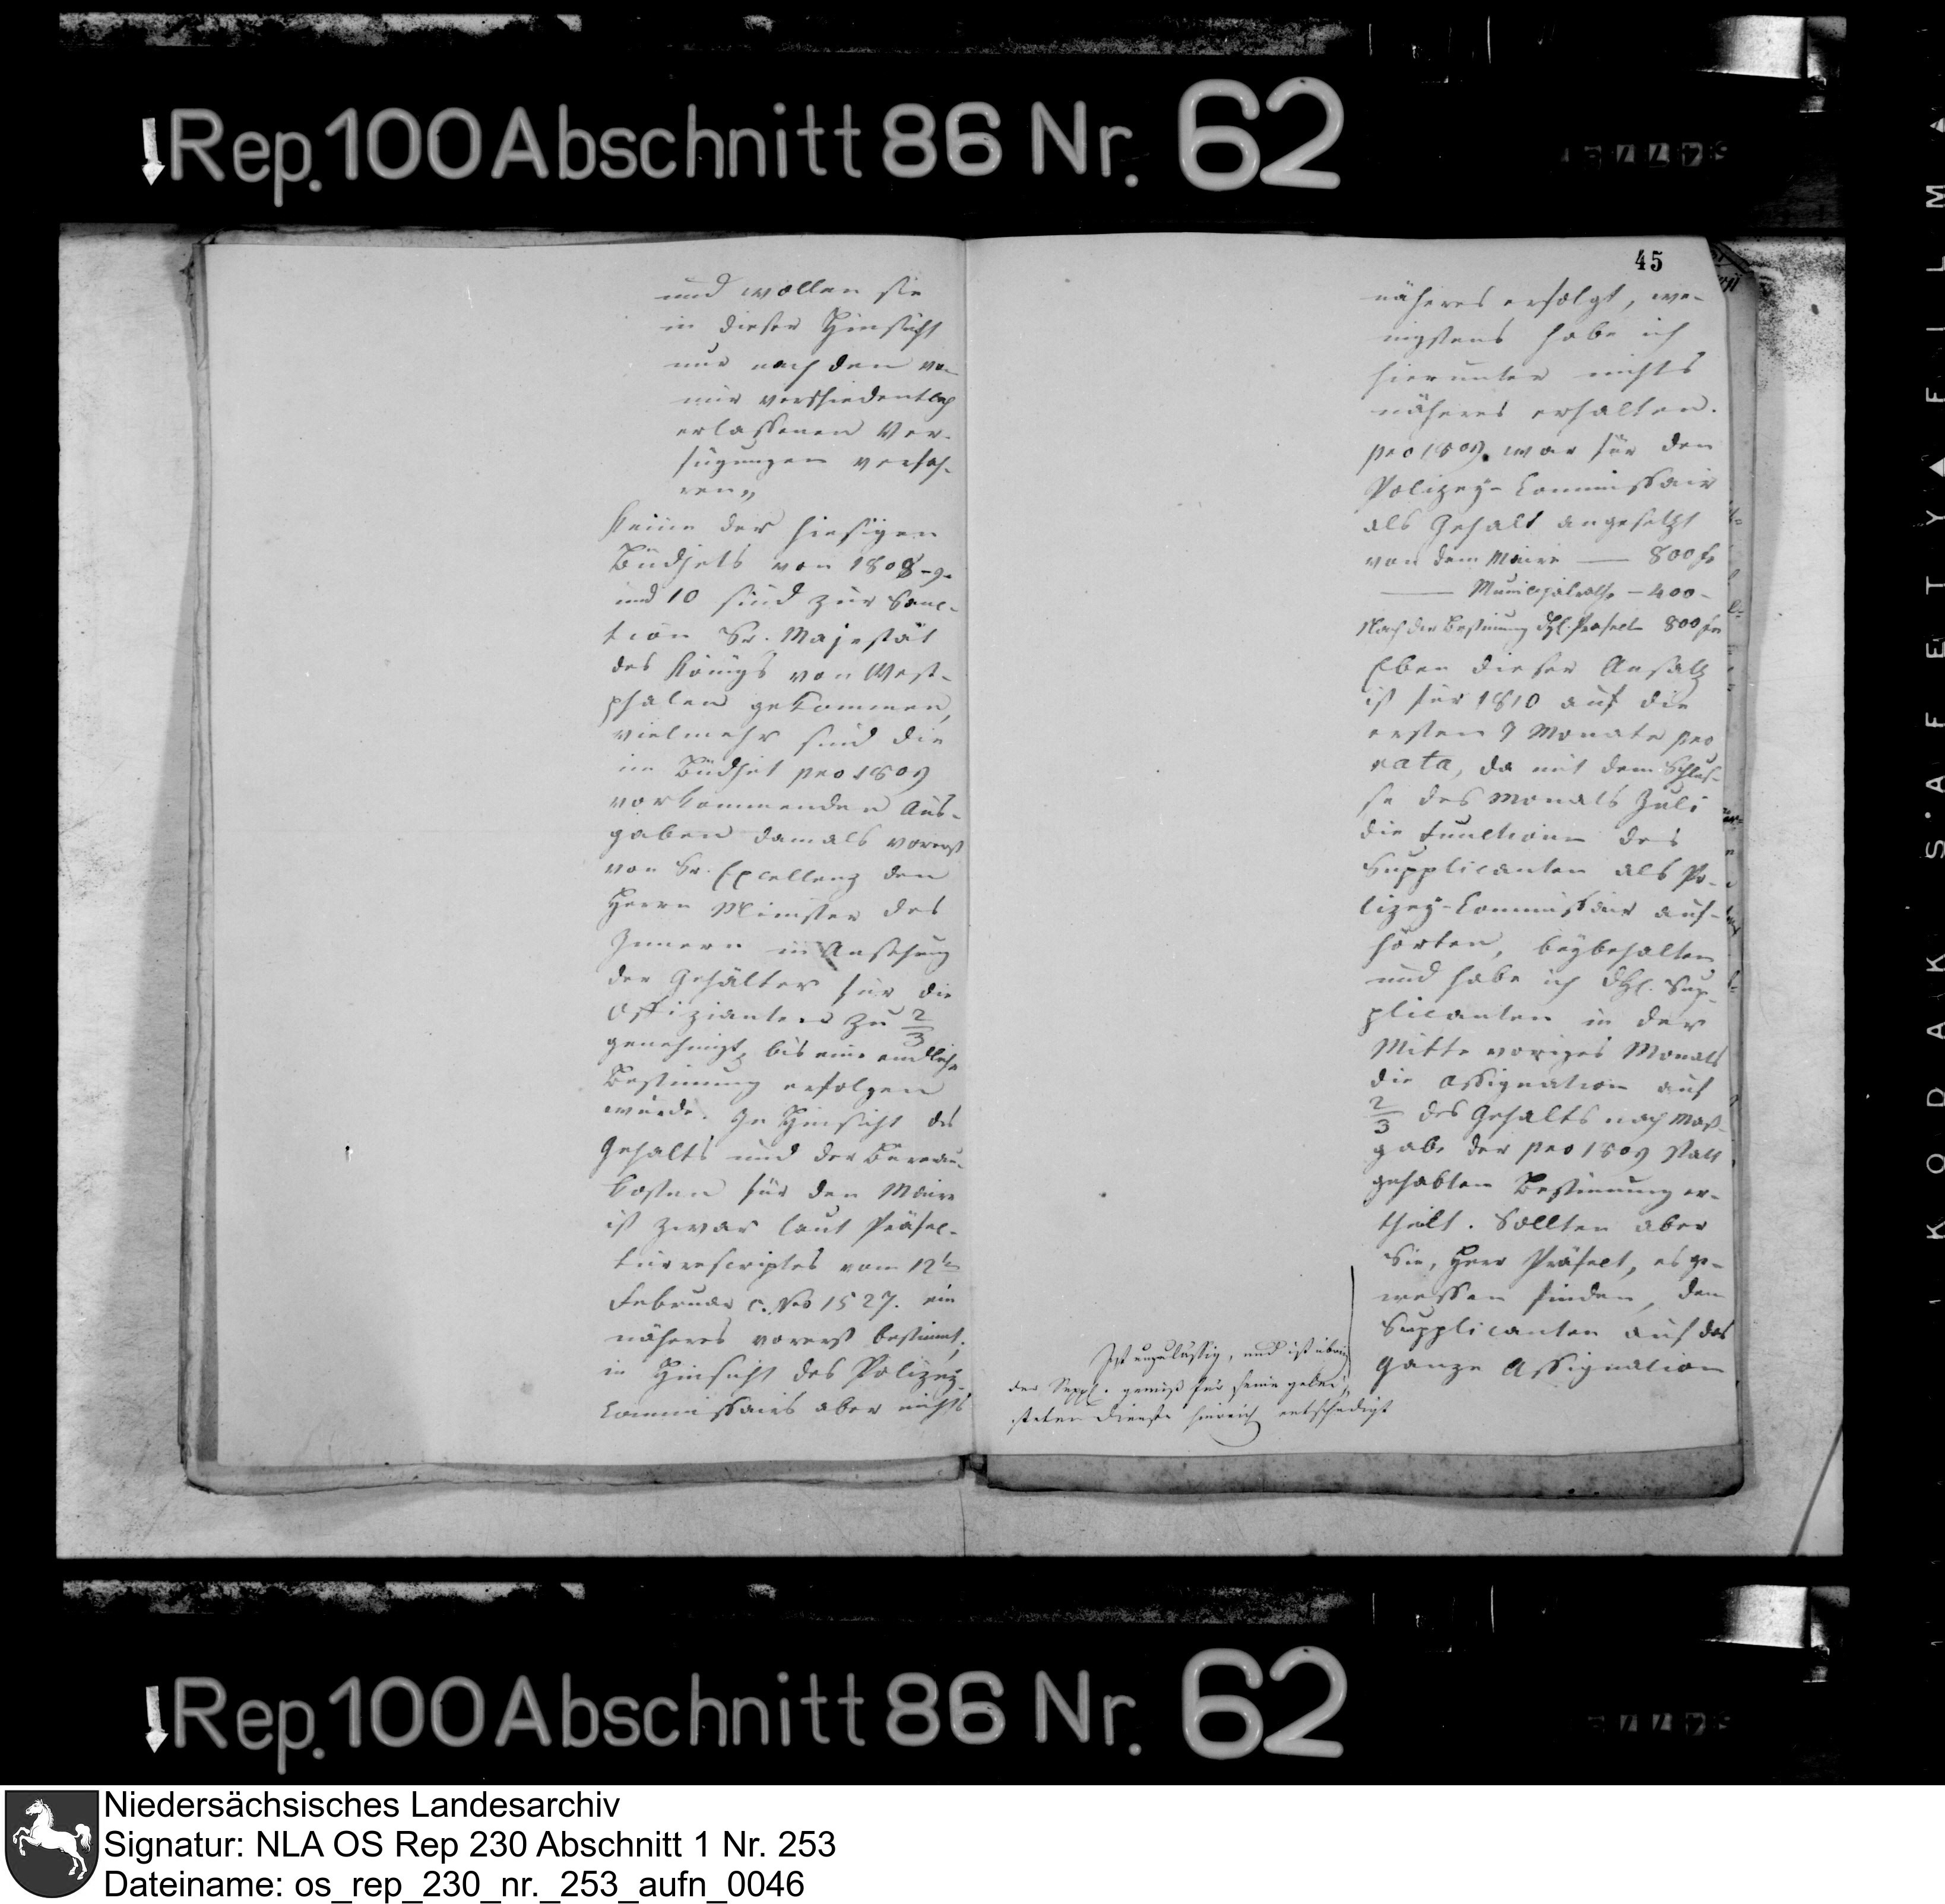 Rep. 100 Abschnitt 86 Nr. 62
und wollen sie
in dieser Hinsicht
nur nach den von
mir verschiedentlich
erlassenen Ver-
fügungen verfah-
ren„
Keine der hiesigen
Büdjets von 1808-9-
und 10 sind zur Sanc-
tion Sr. Majestät
des Königs von West-
phalen gekommen,
vielmehr sind die
im Büdjet pro 1809
vorkommenden Aus-
gaben damals vorerst
von Sr. Excellenz den
Herrn Minister des
Innern in Ansehung
der Gehälter für die
Offizianten zu 2/3
genehmigt, bis eine endliche
Bestimung erfolgen
würde. In Hinsicht des
Gehalts und der Bureau-
kosten für den Maire
ist zwar laut Präfec-
turrescriptes vom 12ten
Februar c. No 1527. ein
näheres vorerst bestimmt;
in Hinsicht des Polizey-
Commissairs aber nichts
45
näheres erfolgt, we-
nigstens habe ich
hierunter nichts
näheres erhalten.
pro 1809. war für den
Polizey-Commissair
als Gehalt angesetzt
von dem Maire — 800 fr
— Municipalrathe — 400 -
Nach der Bestimung des H. Präfect 800 frs
Eben dieser Ansatz
ist für 1810 auf die
ersten 7 Monate pro
rata, da mit dem Schlus-
se des Monats Juli
die Function des
Supplicanten als Po-
lizey-Commissair auf-
hörten, beybehalten
und habe ich dem Sup-
plicanten in der
Mitte voriges Monats
die Assignation auf
2/3 des Gehalts nach Maß-
gabe der pro 1809 statt
gehabten Bestimung er-
theilt. Sollten aber
Sie, Herr Präfect, es ge-
messen finden, dem
Supplicanten auf das
Ganze Assignation
Ist unzulässig, und ist übrig
der Suppl. gewiß für seine gelei-
steten Dienste hinreich entschädigt
Rep. 100 Abschnitt 86 Nr. 62
KODAK SAFETY FILM
Niedersächsisches Landesarchiv
Signatur: NLA OS Rep 230 Abschnitt 1 Nr. 253
Dateiname: os_rep_230_nr._253_aufn_0046